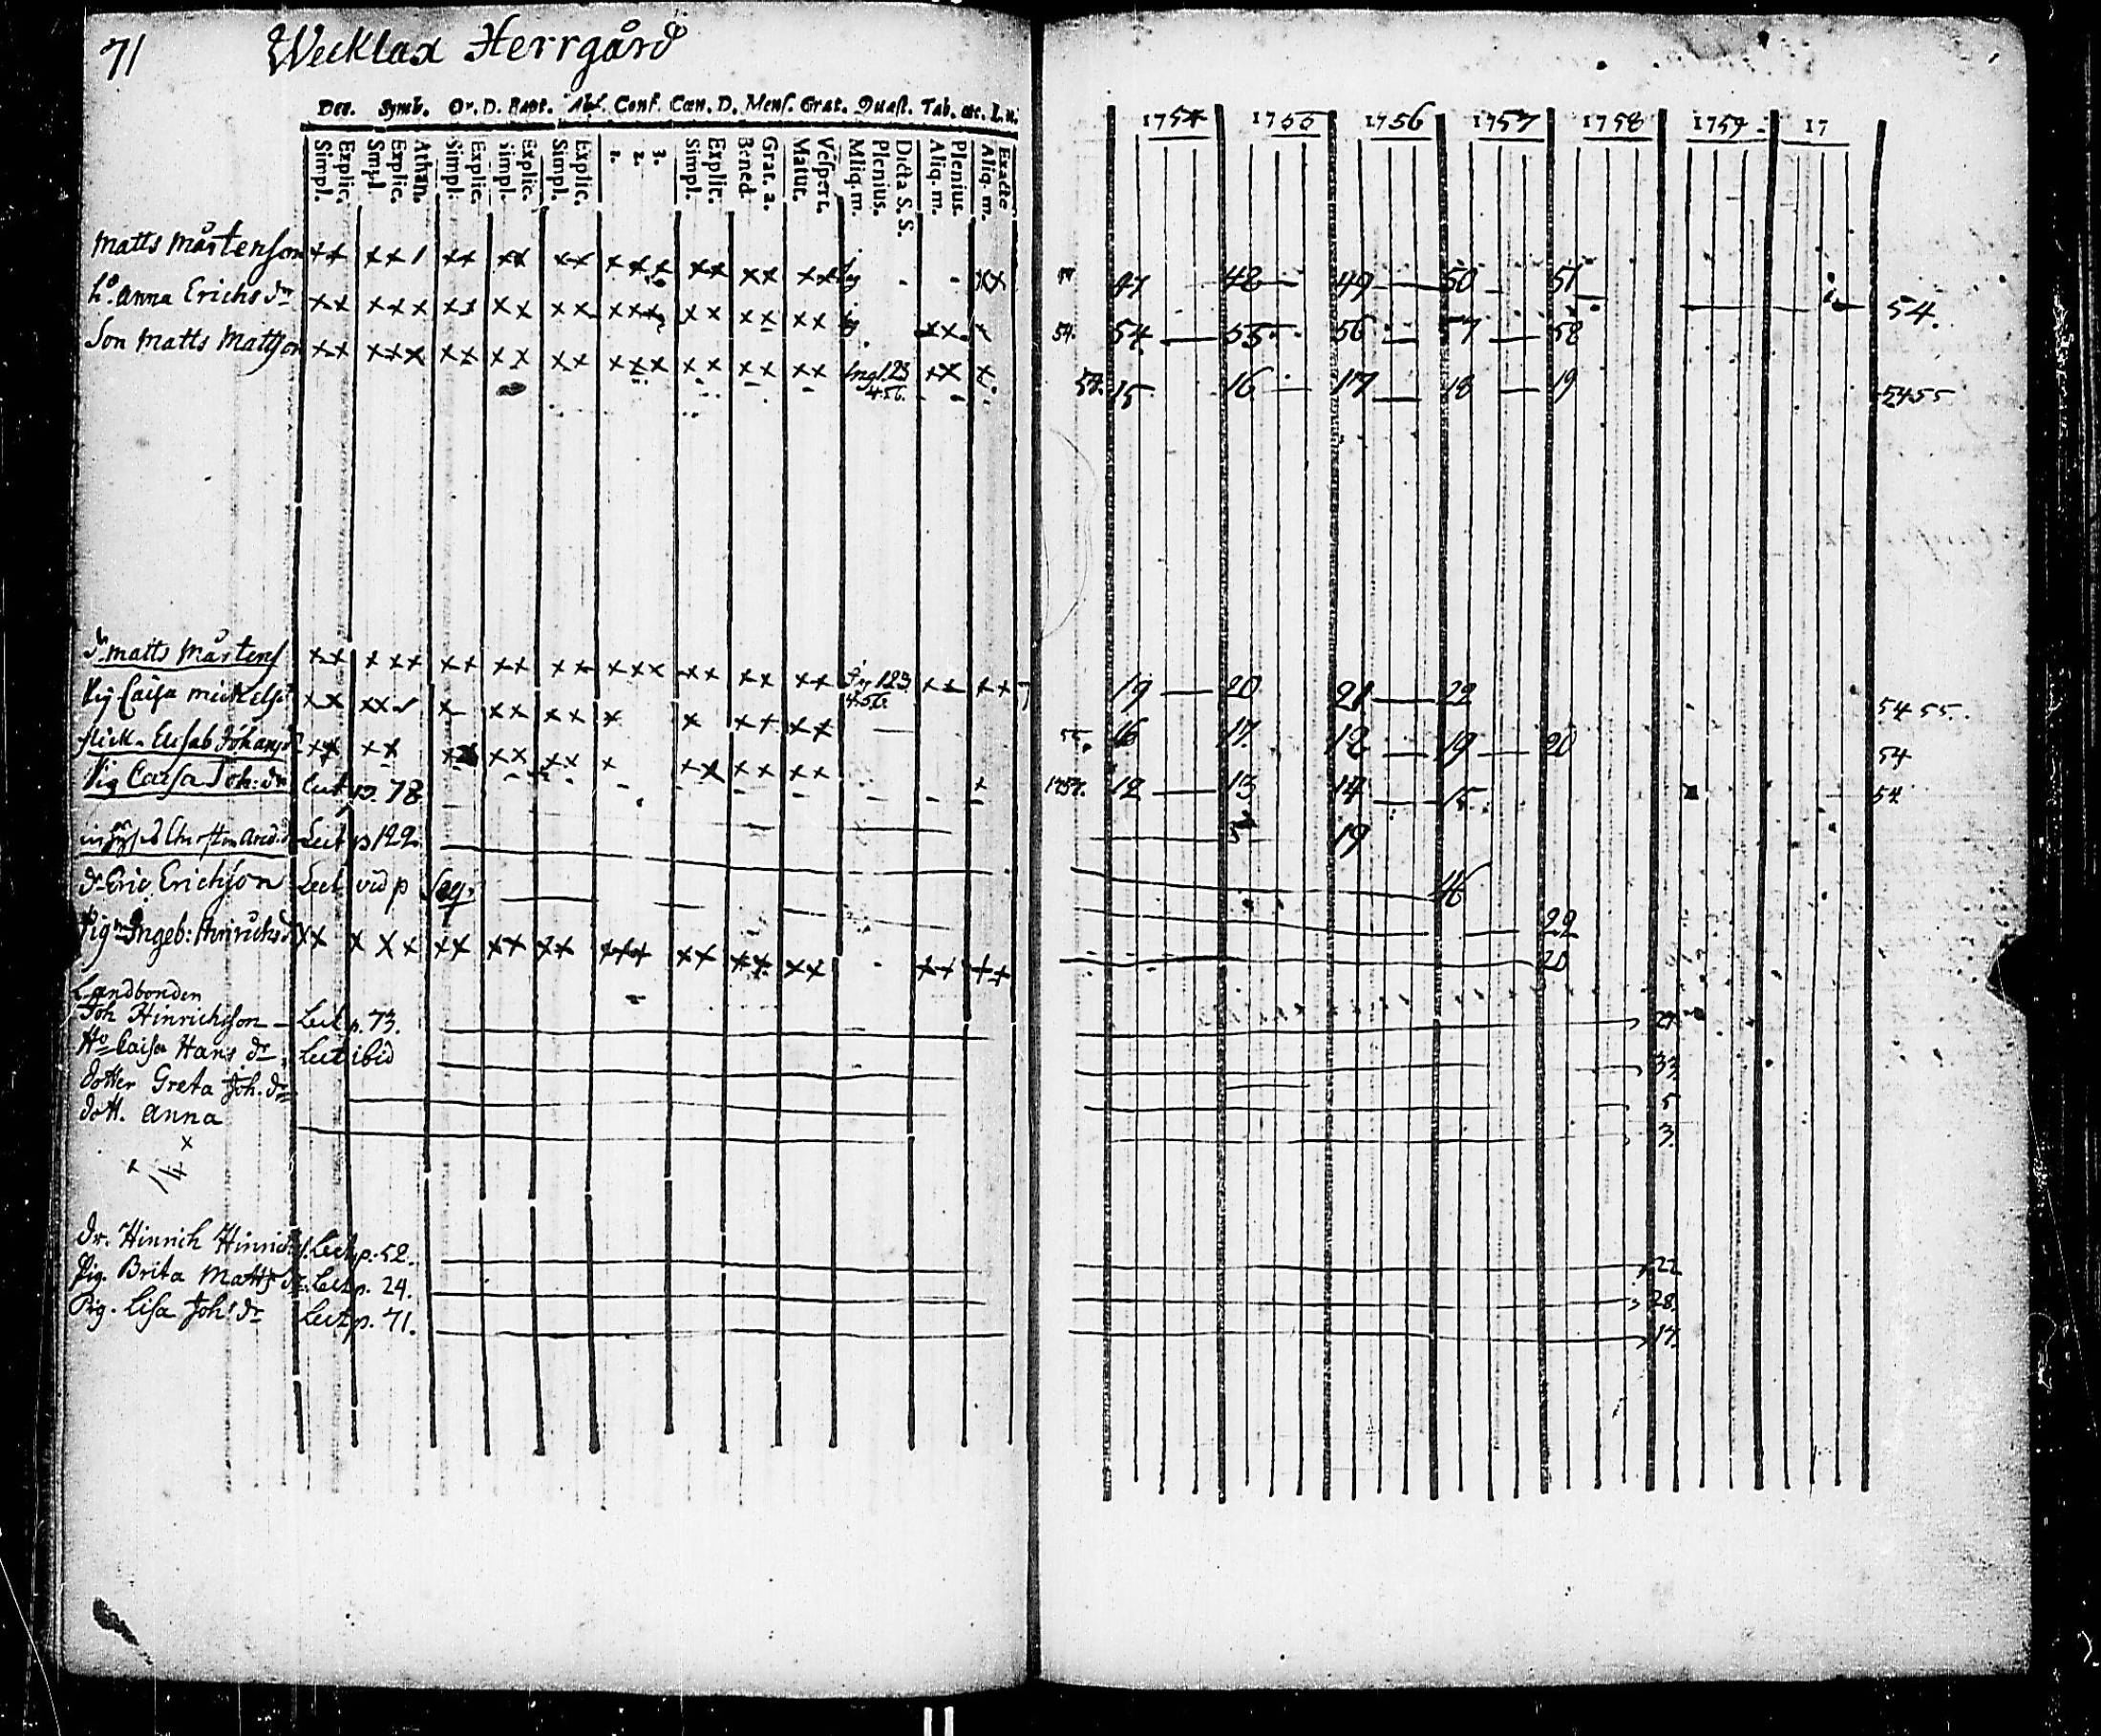 71 Wecklax Herrgård
Dec. Symb. Or. D. Bapt. Abs. Conf. Cœn. D. Menſ. Grat. Quæſt. Tab. œc. L. n.
1754 1755 1756 1757 1758 1759 17
Simpl. Explic. Smpl. Explic. Athan. Simpl. Explic. Simpl. Explic. Simpl. Explic. 1. 2. 3. Simpl. Explic. Bened. Grat. a. Matut. Veſpert. Aliq. m. Plenius. Dicta S. S. Aliq. m. Plenius. Aliq. m. Exacte
Matts Mårtenſon 47 48 49 50 51 54.
ho. Anna Erichs dr 54. 54 55 56 57 58
Son Matts Mattſon 123 456. 15 16 17 18 19 54 55
dr. Matts Mårtens 123 456 19 20 21 22 54 55.
Pig Caiſa Mickels 16 17. 18 19 20 54
flick. Eliſab Johans 12 13 14 15 54
Pig Caiſa Joh: dr Lect p. 78 19
Lect p 122. 46
dr Eric Erichſon Lect vid p 22
Pig Ingeb: Hinrichsd 20
Landbonden
Joh Hinrichsſon Lect p. 73.
Ho Caiſa Hans dr Lect ibid 33.
dotter Greta Joh. dr 5
dott. Anna 3.
dr. Hinrich Hinrichs. Lect p. 52. 22
Pig. Brita Matts dr Lect p. 24. 28.
Pig. Liſa Johs dr Lect p. 71. 17.